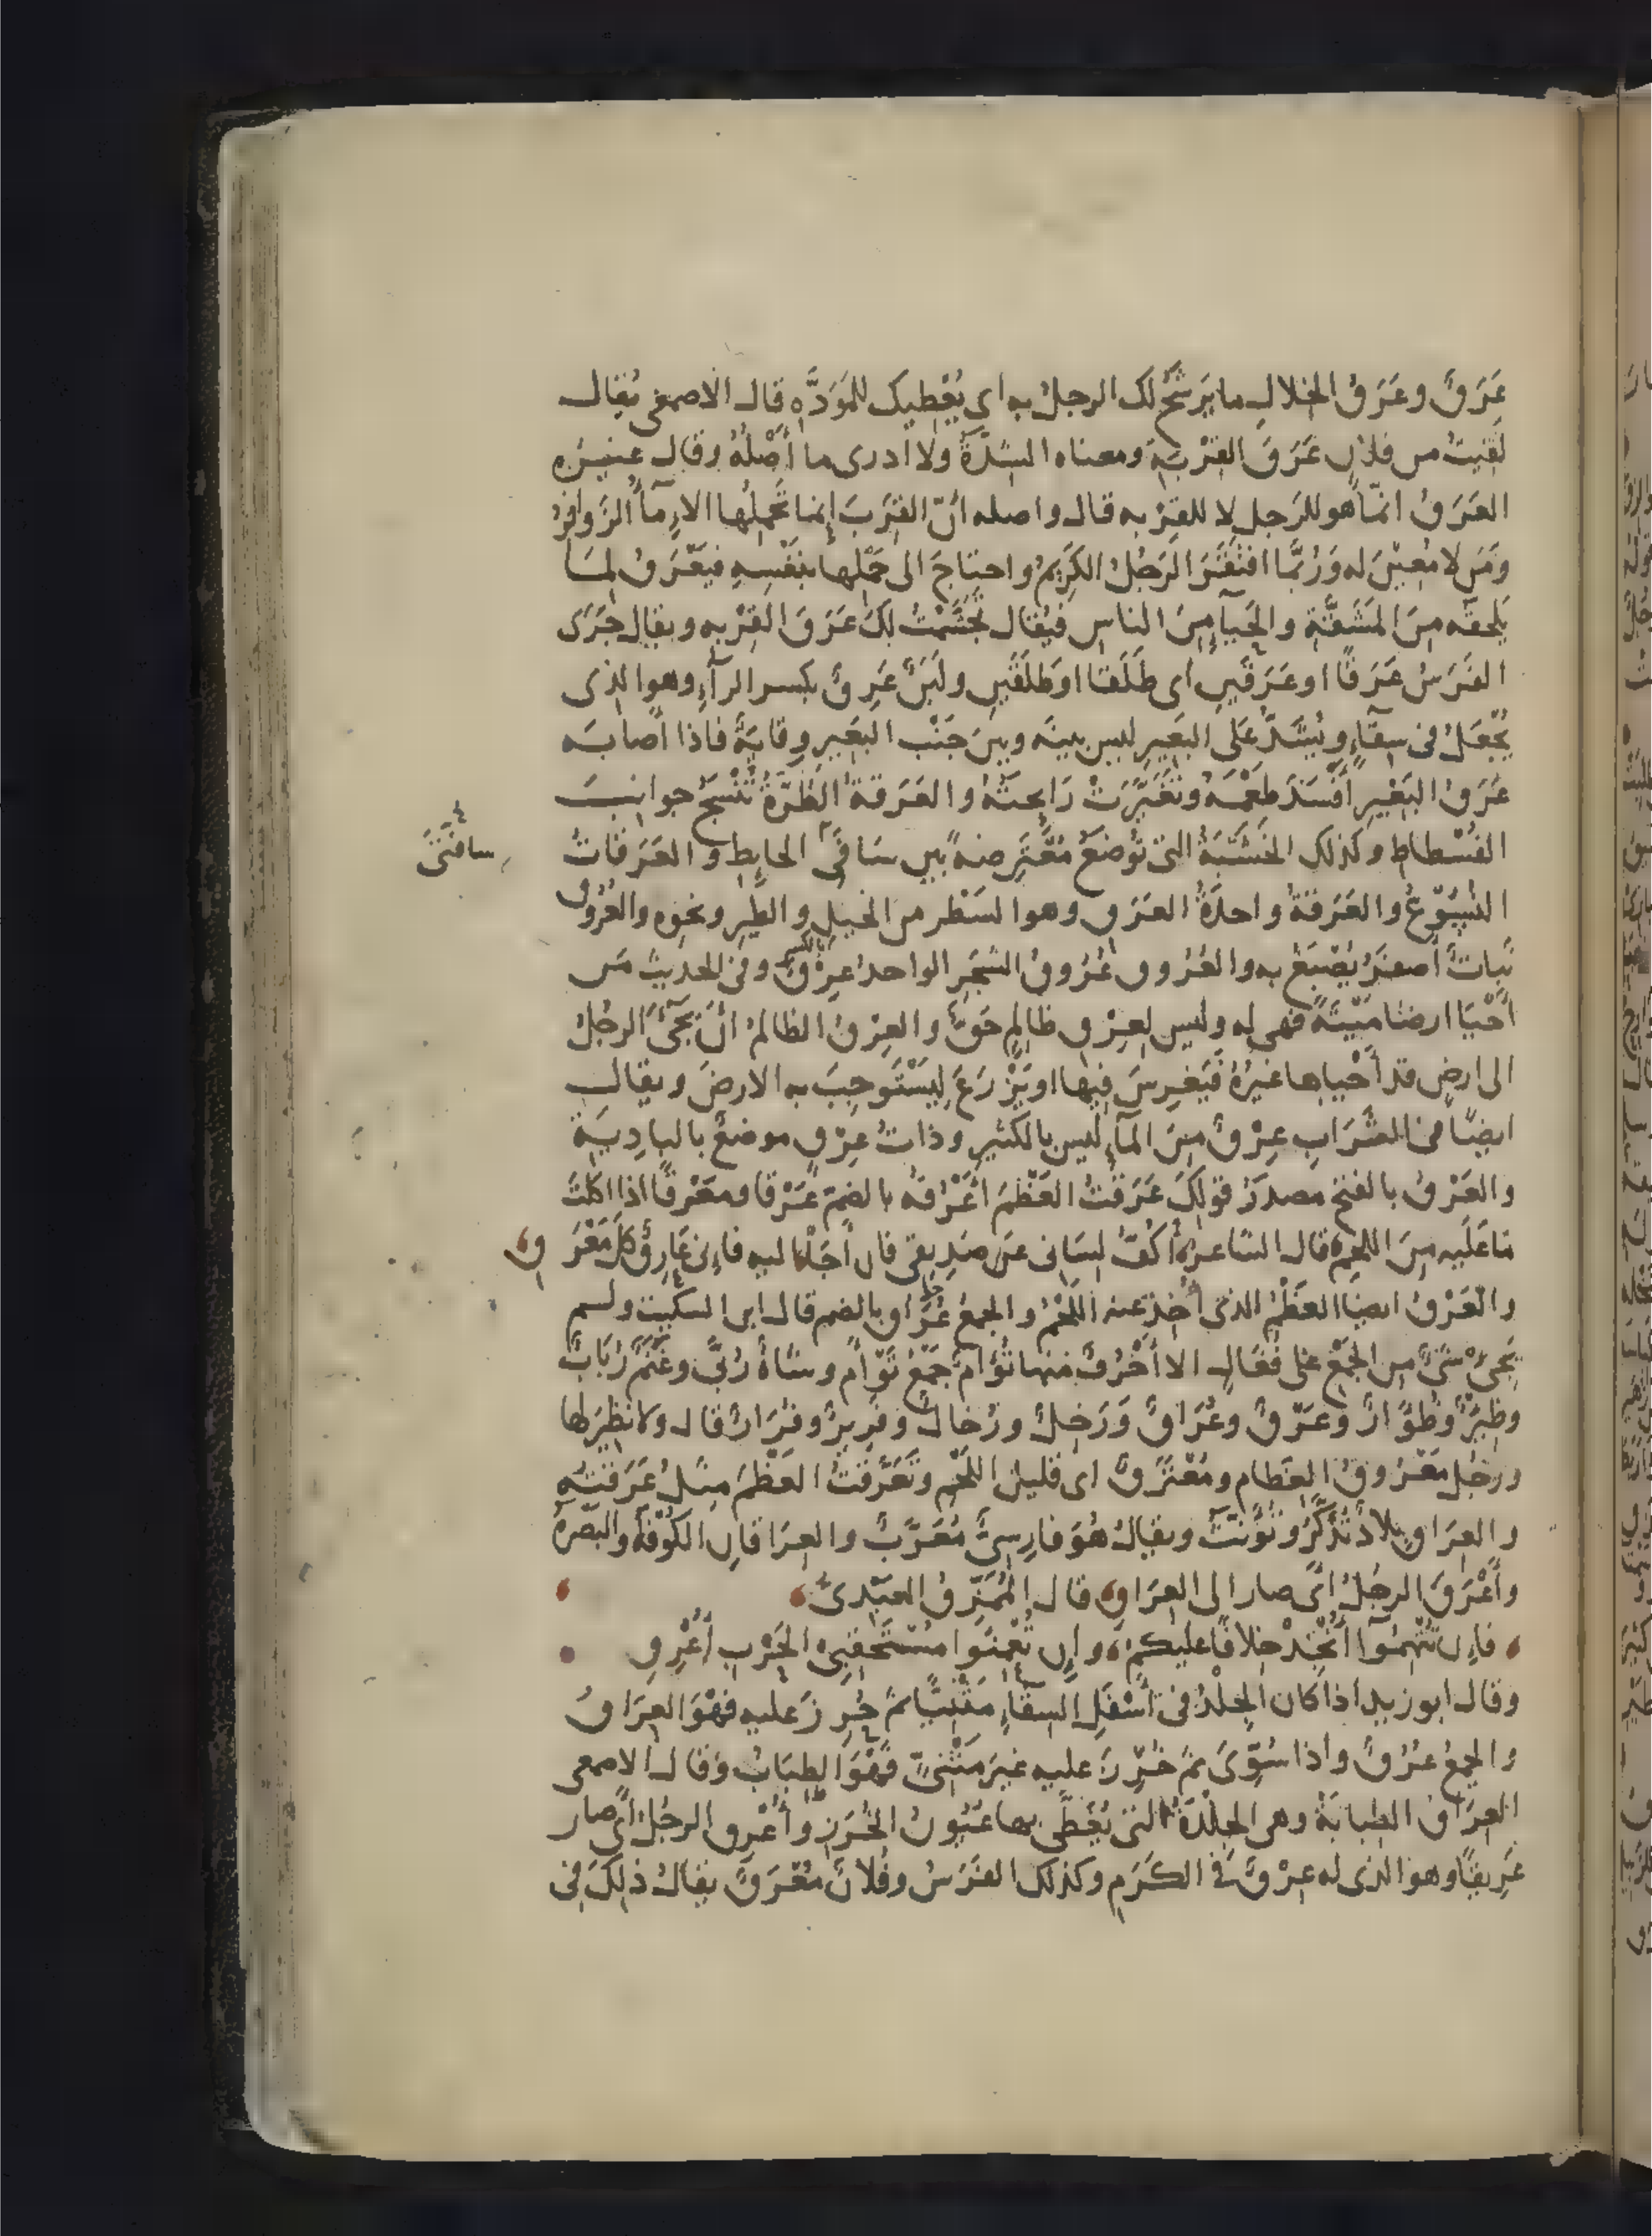 عَرَقٌ وعَرَقُ الخِلالِ ما يَرشَحُ لك الرجلُ به اى يُعْطِيك للمَوَدَّةِ قال الاصمعى يُقال
لَقيتُ من فلان عَرَقَ القِرْبَةِ ومعناه الشِدَّةُ ولا ادرى ما أَصْلُهُ وقال غيرُه
العَرَقُ انمّا هو للرَجلِ لا للقِرْبه قال واصله أنّ القِرَبَ إنما تَحْمِلُها الاِمآءُ الزَوافِرُ
ومَن لا مُعِينَ له وَرُبَّما افتَقَرَ الرَجُلُ الكَرِيمُ واحتاجَ الى حَمْلِها بنَفْسِهِ فيَعْرَقُ لِمَا
يَلحقه مِنَ المَشَقَّةِ والحَيآءِ مِنَ الناسِ فيُقال تَجَشَّمْتُ لكَ عَرَقَ القِرْبه ويقال جَرَى
الفَرَسُ عَرَقًا او عَرَقَينِ اى طَلَقًا او طَلَقَينِ ولَبَنٌ عَرِقٌ بكسر الرآءِ وهو الذى
يُجْعَلُ فى سِقآءٍ ويُشَدُّ عَلَى البَعيرِ ليس بينَه وبينَ جَنْب البَعيرِ وِقايَةٌ فاذا أصابَه
عَرَقُ البَعيرِ أَفْسَدَ طَعْمَهُ وتَغَيَّرَتْ رَايحتُهُ والعَرَقةُ الطُرَّةُ تُنْسَجُ جوانبَ
الفُسْطاطِ وكذلك الخَشَبَةُ التى تُوضَعُ مُعْتَرِضةً بين سَافَىِ الحايطِ والعَرَقاتُ
سافَتَىْ
النُسُوعُ والعَرَقةُ واحدَةُ العَرَقِ وهو السَطْر من الخيلِ والطَيرِ ونحوه والعُرُوق
نَباتٌ أصفَرُ يُصْبَغُ به والعُرُوق عُرُوقُ الشجَرِ الواحدُ عِرْقٌ بالكسر وفى الحديث مَن
أَحْيَا ارضا مَيْتَةً فهى له وليس لعِرْقٍ ظالمٍ حَقٌّ والعِرْقُ الظالمُ انْ يَجِىَٔ الرجُلُ
الى ارضٍ قد أَحْياها غيرُهُ فيَغرِسَ فيها او يَزْرَعَ لِيَسْتَوجِبَ به الارضَ ويقال
ايضًا فى الشَرَابِ عِرْقٌ مِنَ المآءِ ليس بالكثيرِ وذاتُ عِرْقٍ موضعٌ بالبادِيَةِ
والعَرْقُ بالفتح مصدَرُ قولِكَ عَرَقْتُ العَظْمَ أَعْرُقُه بالضمّ عَرْقا ومَعْرَقًا اذا اكلتَ
مَا عَلَيه مِنَ اللحم قال الشاعر أَكُفُّ لِسَانى عَن صَدِيقى فان أُجَأْ اليه فاِنى عَارِقٌ كلَّ مَعْرَقِ
والعَرْقُ ايضا العَظْمُ الذى أُخِذَ عنه اللَحْمُ والجمعُ عُرَاق بالضم قال ابن السكيت ولم
يَجِىْٔ شىٌٔ من الجَمْعِ على فُعَالٍ الا أَحْرُفٌ منها تُؤَامٌ جَمْعُ تَوْأَمٍ وشاةٌ رُبَّى وغَنَمٌ رُبَابٌ
وظِئْرٌ وظُؤَارٌ وعَرْقٌ وعُرَاقٌ وَرَخِلٌ ورُخالٌ وفَرِيرٌ وفُرَارٌ قال ولا نظيرَ لها
ورجُل مَعْرُوقُ العِظام ومُعْتَرَقٌ اى قليل اللَحْمِ وتَعَرَّقْتُ العَظْمَ مِثلُ عَرَقْتُه
والعِرَاق بلادٌ تُذَكَّرُ وتُؤَنَّثُ ويقالُ هُوَ فارسِىٌّ مُعَرَّبٌ والعِرَاقانِ الكُوفَة والبَصْرة
وأَعْرَقَ الرجُلُ اى صار الى العِرَاقِ قال المُمَزّقُ العَبْدىُّ
فاِن تُتْهِمُوا أُنْجِدْ خِلافًا عليكم وان تُعْمِنُوا مُسْتَحْقِبِى الحَرْبِ أُعْرِقِ
وقال ابو زيد اذا كان الجِلدُ فى أَسْفَلِ السِقآءِ مَثْنِيًّا ثم خُرِزَ عليه فهْوَ العِرَاقُ
والجمعُ عُرُقٌ واذا سُوِّىَ ثمّ خُرِزَ عليه غيرَ مَثْنِىٍّ فَهْوَ الطِبَابُ وقال الاصمعى
العِرَاقُ الطِبابَةُ وهى الجِلْدَةُ التى تُغَطَّى بها عُيُونُ الخُرَزِ وأَعْرق الرجُلُ اى صار
عَرِيقًا وهو الذى له عِرْقٌ فى الكَرَمِ وكذلك الفَرَسُ وفلانٌ مُعْرَقٌ يقالُ ذلِكَ فى